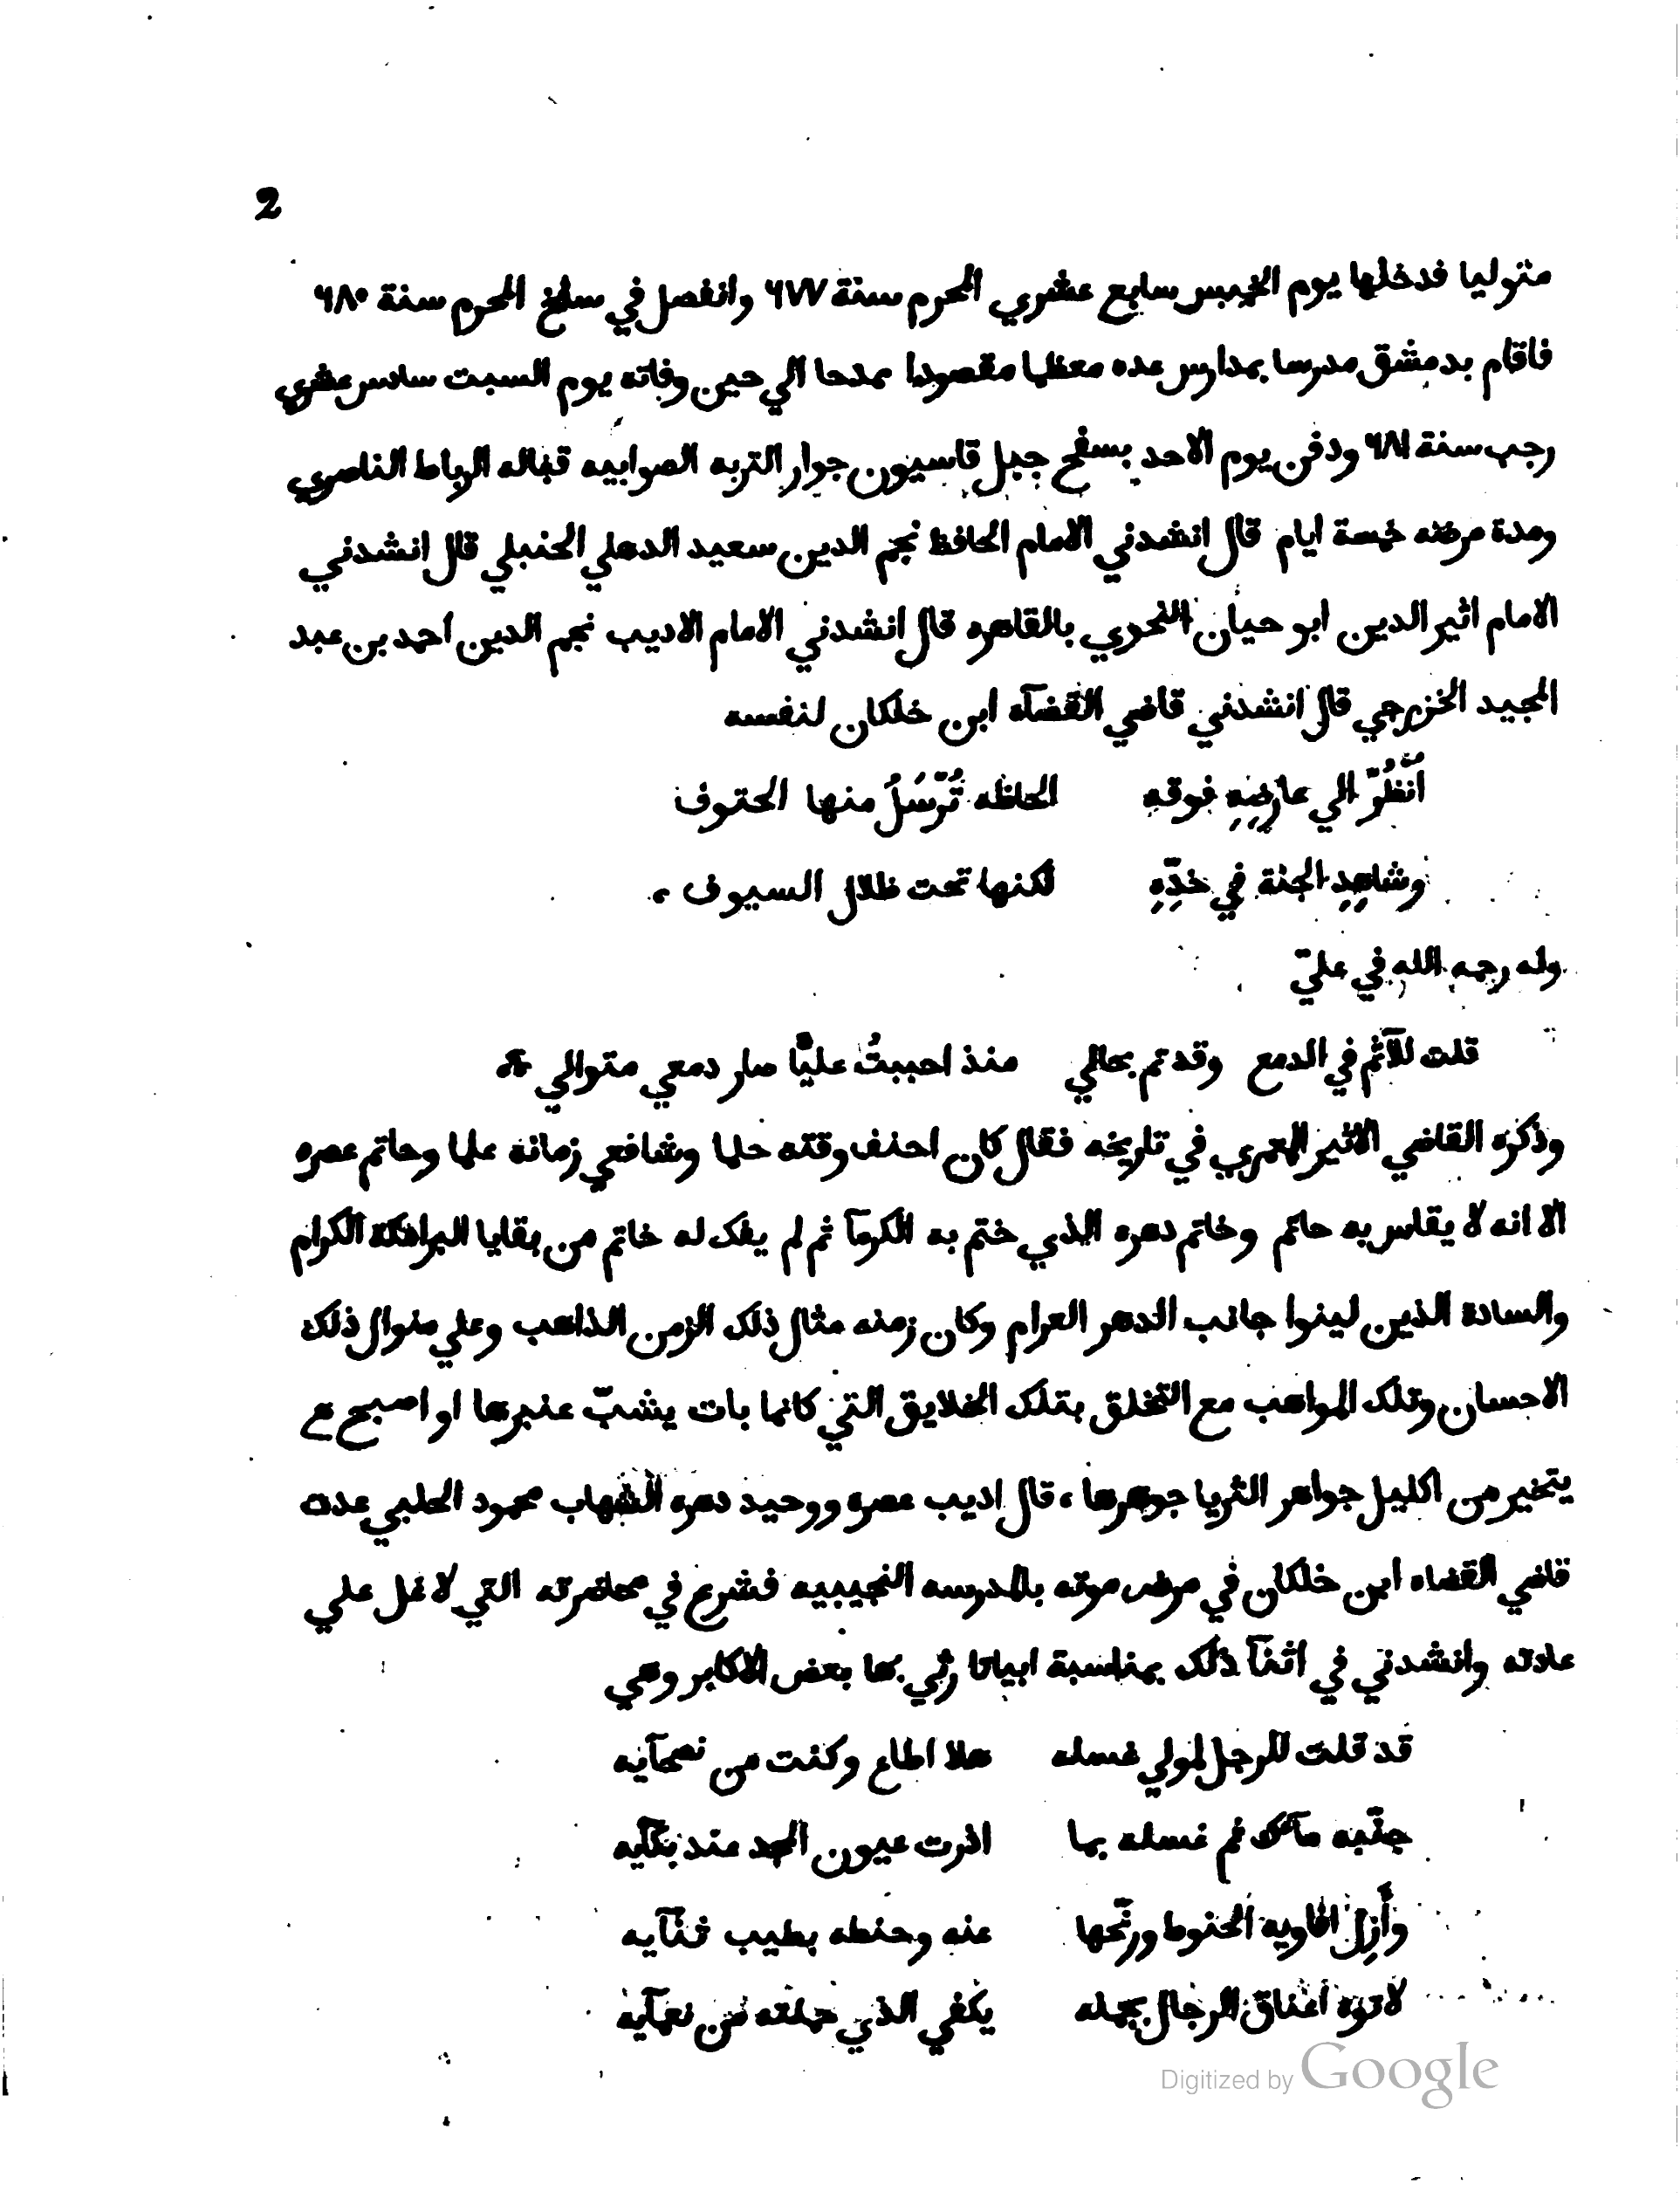 2
متوليا فدخلها يوم الخميس سابع عشري المحرم سنة ٦٧٧ وانفصل في سلخ المحرم سنة ٦٨٠
فاقام بدمشق مدرسا بمدارس عده معظما مقصودا ممدحا الي حين وفاته يوم السبت سادس عشري
رجب سنة ٦٨١ ودفن يوم الاحد بسفح جبل قاسيون جوار التربه الصوابيه قباله الرباط الناصري
ومدة مرضه خمسة ايام قال انشدني الامام الحافظ نجم الدين سعيد الدهلي الحنبلي قال انشدني
الامام اثير الدين ابو حيان النحوي بالقاهره قال انشدني الامام الاديب نجم الدين احمد بن عبد
المجيد الخزرجي قال انشدني قاضي القضآه ابن خلكان لنفسه
اُنْظُرْ الي عارِضِهِ فوقه الحاظه تُرْسَلُ منها الحتوف
وشاهِدِ الجنة في خدِّهِ لكنها تحت ظلال السيوف ،
وله رحمه الله في عليّ
قلت للآئم في الدمع وقد تم بحالي منذ احببتُ عليًا صار دمعي متوالي
وذكره القاضي الاثير العمري في تاريخه فقال كان احنف وقته حلما وشافعي زمانه علما وحاتم عصره
الا انه لا يقاس به حاتم وخاتم دهره الذي ختم به الكرمآ ثم لم يفك له خاتم من بقايا البرامكة الكرام
والسادة الذين لينوا جانب الدهر العرام وكان زمنه مثال ذلك الزمن الذاهب وعلي منوال ذلك
الاحسان وتلك المواهب مع التخلق بتلك الخلايق التي كانما بات يشبّ عنبرها او اصبح
يتخير من اكليل جواهر الثريا جوهرها ، قال اديب عصره ووحيد دهره الشهاب محمود الحلبي عدت
قاضي القضاه ابن خلكان في مرض موته بالمدرسه النجيبيه فشرع في محاضرته التي لا تمل علي
عادته وانشدني في اثنآ ذلك بمناسبة ابياتا رثي بها بعض الاكابر وهي
قد قلت للرجل المولي غسله هلا اطاع وكنت من نصحآيه
جنّبه مآءك ثم غسله بما اذرت عيون المجد عند بكآيه
وأَزِل افاويه الحنوط ونحّها عنه وحنطه بطيب ثنآيه
لا توه اعناق الرجال بحمله يكفي الذي حملته من نعمآيه
Digitized by Google